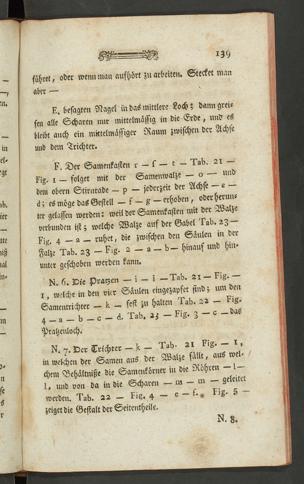 139
führet, oder wenn man aufhört zu arbeiten. Stecket man
aber —
E, besagten Nagel in das mittlere Loch; dann grei-
fen alle Scharen nur mittelmässig in die Erde, und es
bleibt auch ein mittelmässiger Raum zwischen der Achse
und dem Trichter.
F. Der Samenkasten r — s — t — Tab. 21 —
Fig. 1 — folget mit der Samenwalze — o — und
dem obern Stirnrade — p — jederzeit der Achse — e —
d; es möge das Gestell — f — g — erhoben, oder herun-
ter gelassen werden: weil der Samenkasten mit der Walze
verbunden ist; welche Walze auf der Gabel Tab. 23 —
Fig. 4 — a — ruhet, die zwischen den Säulen in der
Falze Tab. 23 — Fig. 2 — a — b — hinauf und hin-
unter geschoben werden kann.
N. 6. Die Pratzen — i — i — Tab. 21 — Fig. —
1, welche in den vier Säulen eingezapfet sind; um den
Samentrichter — k — fest zu halten Tab. 22 — Fig.
4 — a — b — c — d. Tab. 23 — Fig. 3 — c — das
Pratzenloch.
N. 7. Der Trichter — k — Tab. 21 Fig. — 1,
in welchen der Samen aus der Walze fällt, aus wel-
chem Behältnisse die Samenkörner in die Röhren — l —
l, und von da in die Scharen — m — m — geleitet
werden. Tab. 22 — Fig. 4 — e — f. Fig. 5 —
zeiget die Gestalt der Seitentheile.
N. 8.